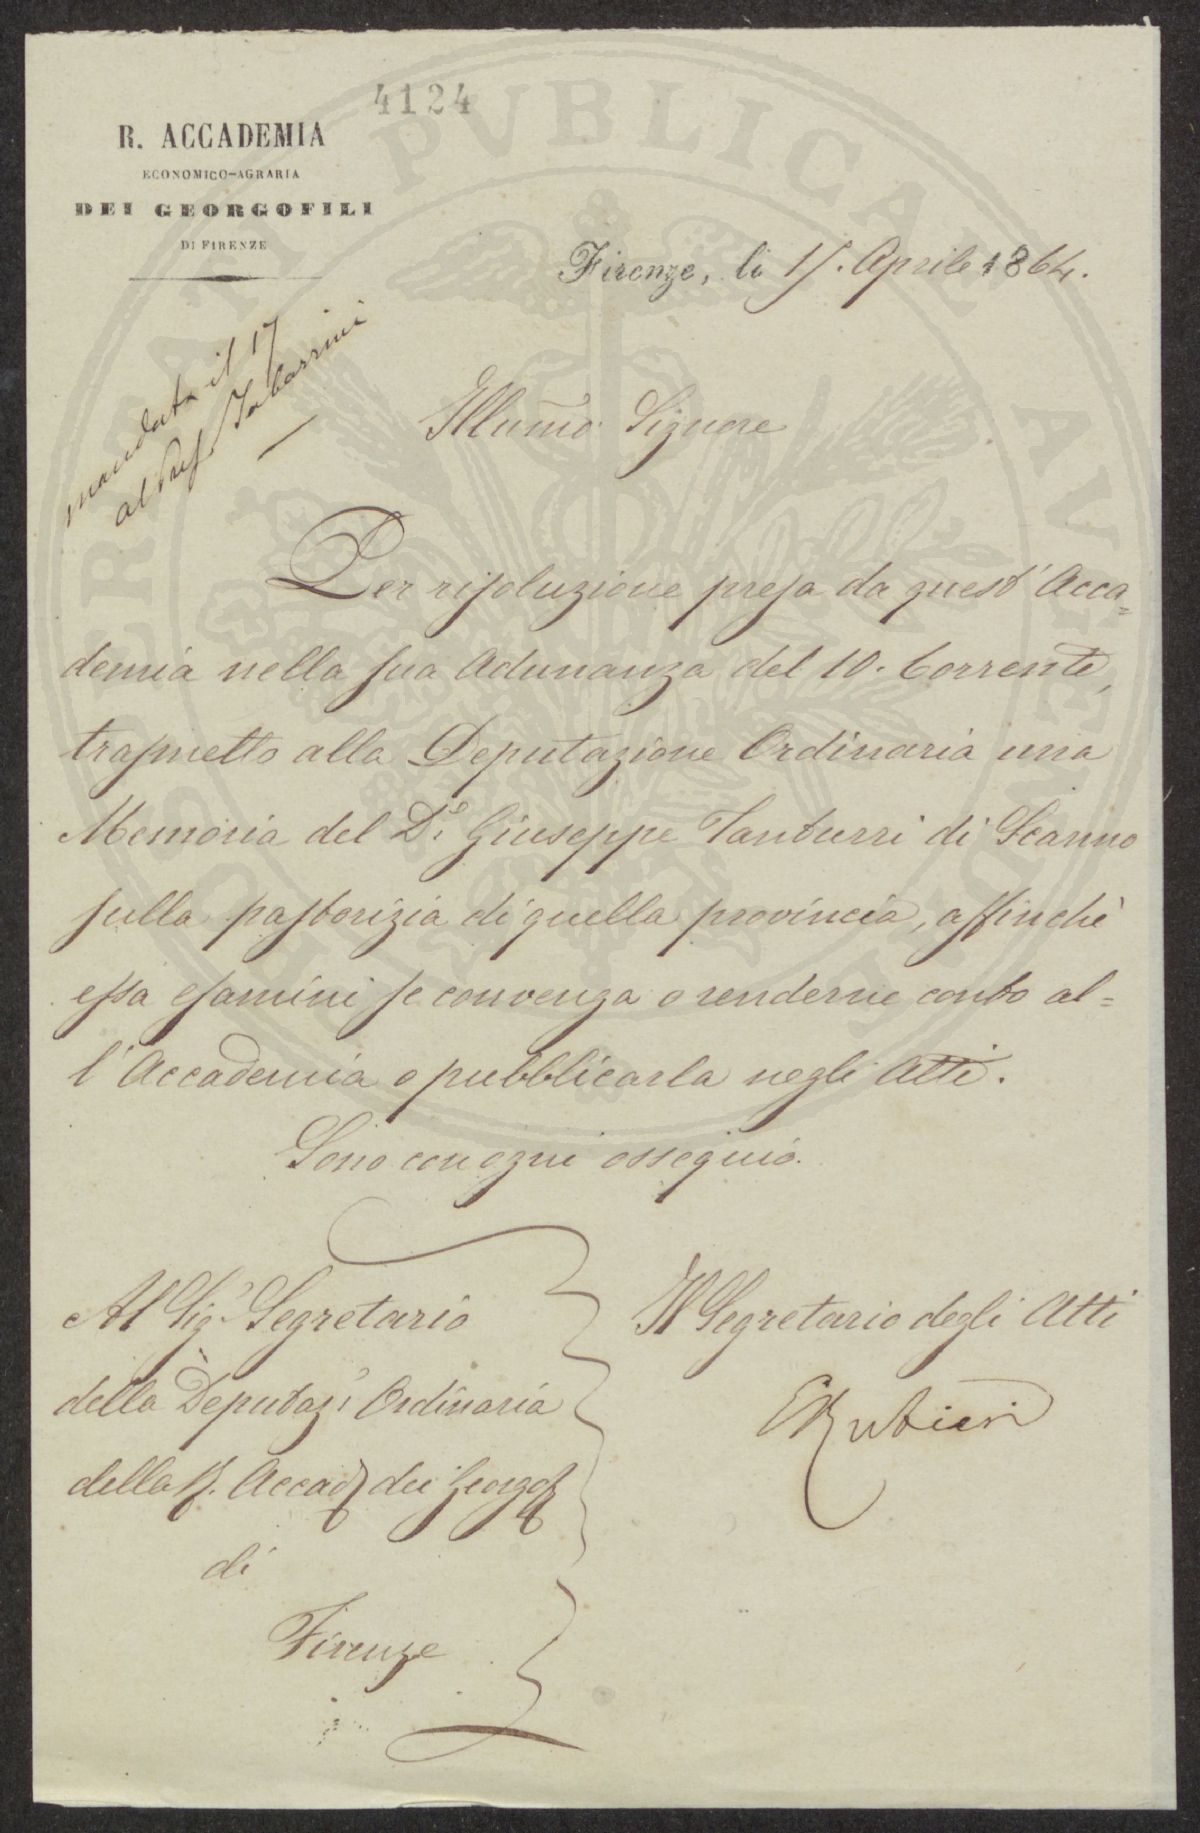 4124
R. ACCADEMIA
ECONOMICO-AGRARIA
DEI GEORGOFILI
DI FIRENZE
Firenze, li 15. Aprile 1864.
mandata il 17
al Prof Tabarrini
Illumo Signore
Per risoluzione presa da quest' Acca=
demia nella sua Adunanza del 10. Corrente,
trasmetto alla Deputazione Ordinaria una
Memoria del Dr. Giuseppe Tanturri di Scanno
sulla pastorizia di quella provincia, affinchè
essa esamini se convenga o renderne conto al=
l'Accademia o pubblicarla negli Atti.
Sono con ogni ossequio.
Al Sigr. Segretario
della Deputaz. Ordinaria
della R. Accad. dei Georgof.
di
Firenze
Il Segretario degli Atti
E Rubieri